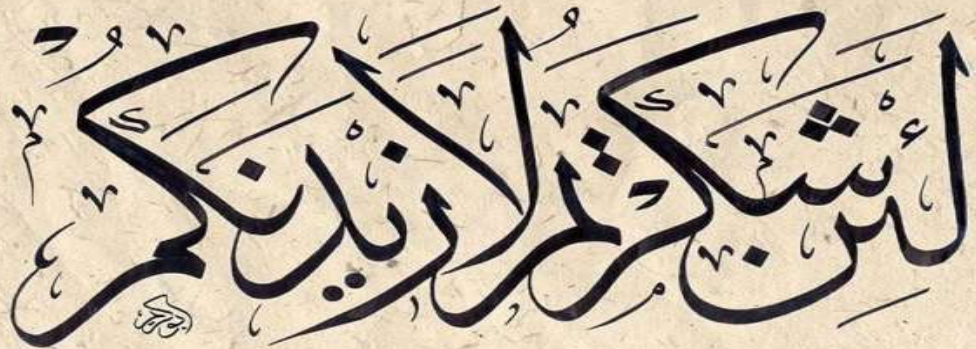 لئن شكرتم لازيدنكم